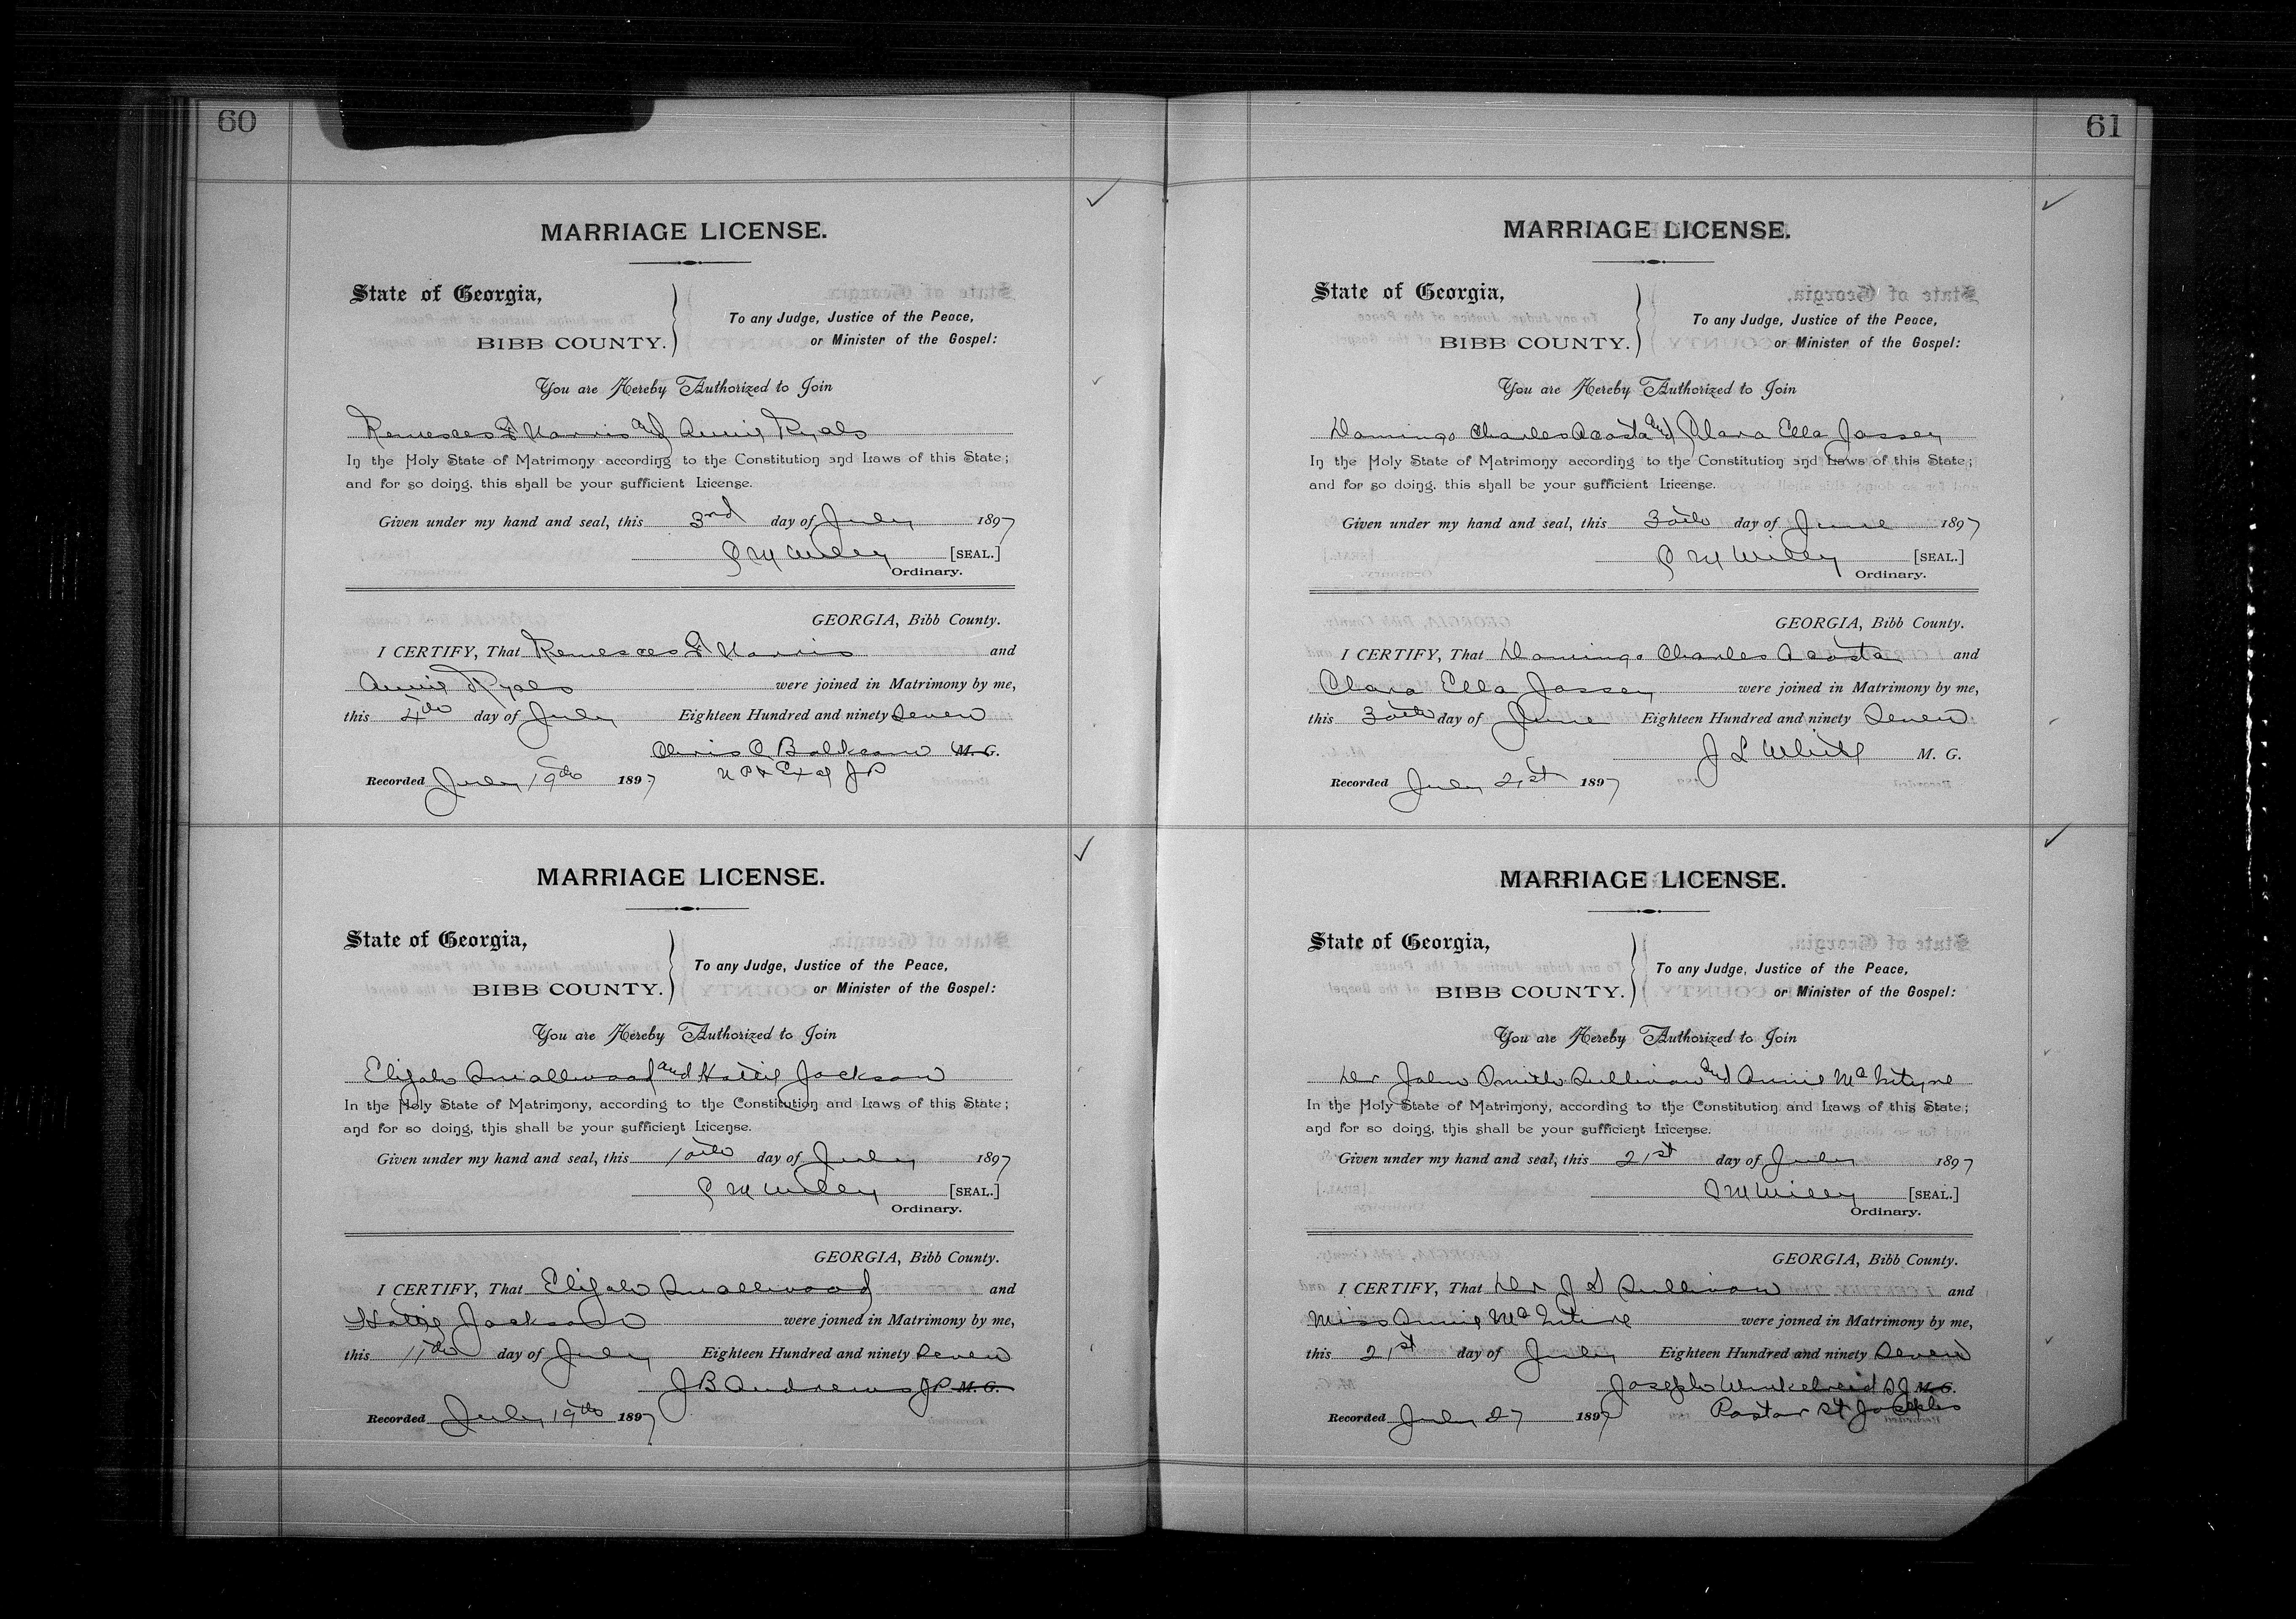 60
MARRIAGE LICENSE.
State of Georgia,
BIBB COUNTY.
To any Judge, Justice of the Peace,
or Minister of the Gospel:
You are Hereby Authorized to Join
Harris and Annie Ryals
In the Holy State of Matrimony according to the Constitution and Laws of this State;
and for so doing, this shall be your sufficient License.
Given under my hand and seal, this 3rd day of July 1897
C M Wiley [SEAL.]
Ordinary.
GEORGIA, Bibb County.
I CERTIFY, That Harris and
Annie Ryals were joined in Matrimony by me,
this 4th day of July Eighteen Hundred and ninety Seven
M. G.
Recorded July 19th 1897 J P
MARRIAGE LICENSE.
State of Georgia,
BIBB COUNTY.
To any Judge, Justice of the Peace,
or Minister of the Gospel:
You are Hereby Authorized to Join
Elijah Smallwood and Hattie Jackson
In the Holy State of Matrimony, according to the Constitution and Laws of this State;
and for so doing, this shall be your sufficient License.
Given under my hand and seal, this 10th day of July 1897
C M Wiley [SEAL.]
Ordinary.
GEORGIA, Bibb County.
I CERTIFY, That Elijah Smallwood and
Hattie Jackson were joined in Matrimony by me,
this 11th day of July Eighteen Hundred and ninety Seven
J B Andrews J P M. G.
Recorded July 19th 1897
61
MARRIAGE LICENSE.
State of Georgia,
BIBB COUNTY.
To any Judge, Justice of the Peace,
or Minister of the Gospel:
You are Hereby Authorized to Join
Domingo Charles Acosta and Clara Ella Jossey
In the Holy State of Matrimony according to the Constitution and Laws of this State;
and for so doing, this shall be your sufficient License.
Given under my hand and seal, this 30th day of June 1897
C M Wiley [SEAL.]
Ordinary.
GEORGIA, Bibb County.
I CERTIFY, That Domingo Charles Acosta and
Clara Ella Jossey were joined in Matrimony by me,
this 30th day of June Eighteen Hundred and ninety Seven
J L White M. G.
Recorded July 21st 1897
MARRIAGE LICENSE.
State of Georgia,
BIBB COUNTY.
To any Judge, Justice of the Peace,
or Minister of the Gospel:
You are Hereby Authorized to Join
Dr John Smith Sullivan and Annie McIntyre
In the Holy State of Matrimony, according to the Constitution and Laws of this State;
and for so doing, this shall be your sufficient License.
Given under my hand and seal, this 21st day of July 1897
C M Wiley [SEAL.]
Ordinary.
GEORGIA, Bibb County.
I CERTIFY, That Dr J S Sullivan and
Miss Annie McIntire were joined in Matrimony by me,
this 21st day of July Eighteen Hundred and ninety Seven
Joseph Winkelreid S J M. G.
Recorded July 27 1897 Pastor St Josephs